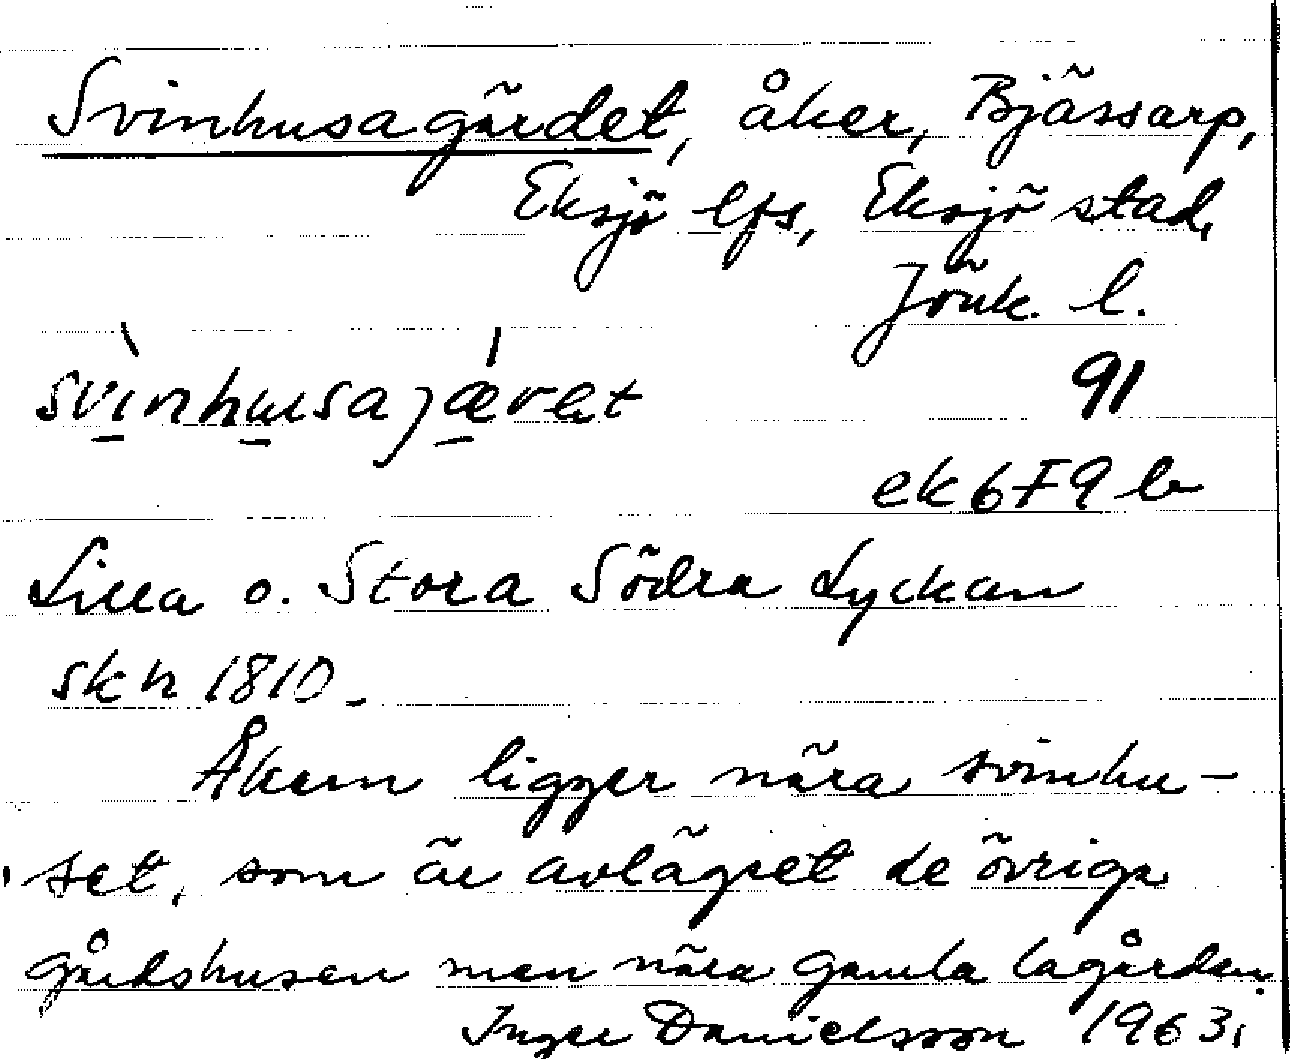 Svinhusagärdet, åker, Bjässarp,
Eksjö lfs, Eksjö stad,
Jönk. l.
svinhusajæret
91
ek 6F9b
Lilla o. Stora Södra Lyckan
skh 1810.
Åkern ligger nära svinhu-
set, som är avlägset de övriga
gårdshusen men nära gamla lagården.
Inger Danielsson 1963.